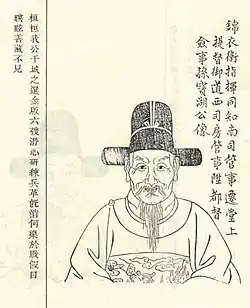 錦衣衛指揮同知南司管事遷堂上
提督御道西司房管事陞都督
僉事揉寶湖公像
桓桓我公干城之選金版六弢潛心研練兵革旣消何樂於戰假目
聘眺善藏不見